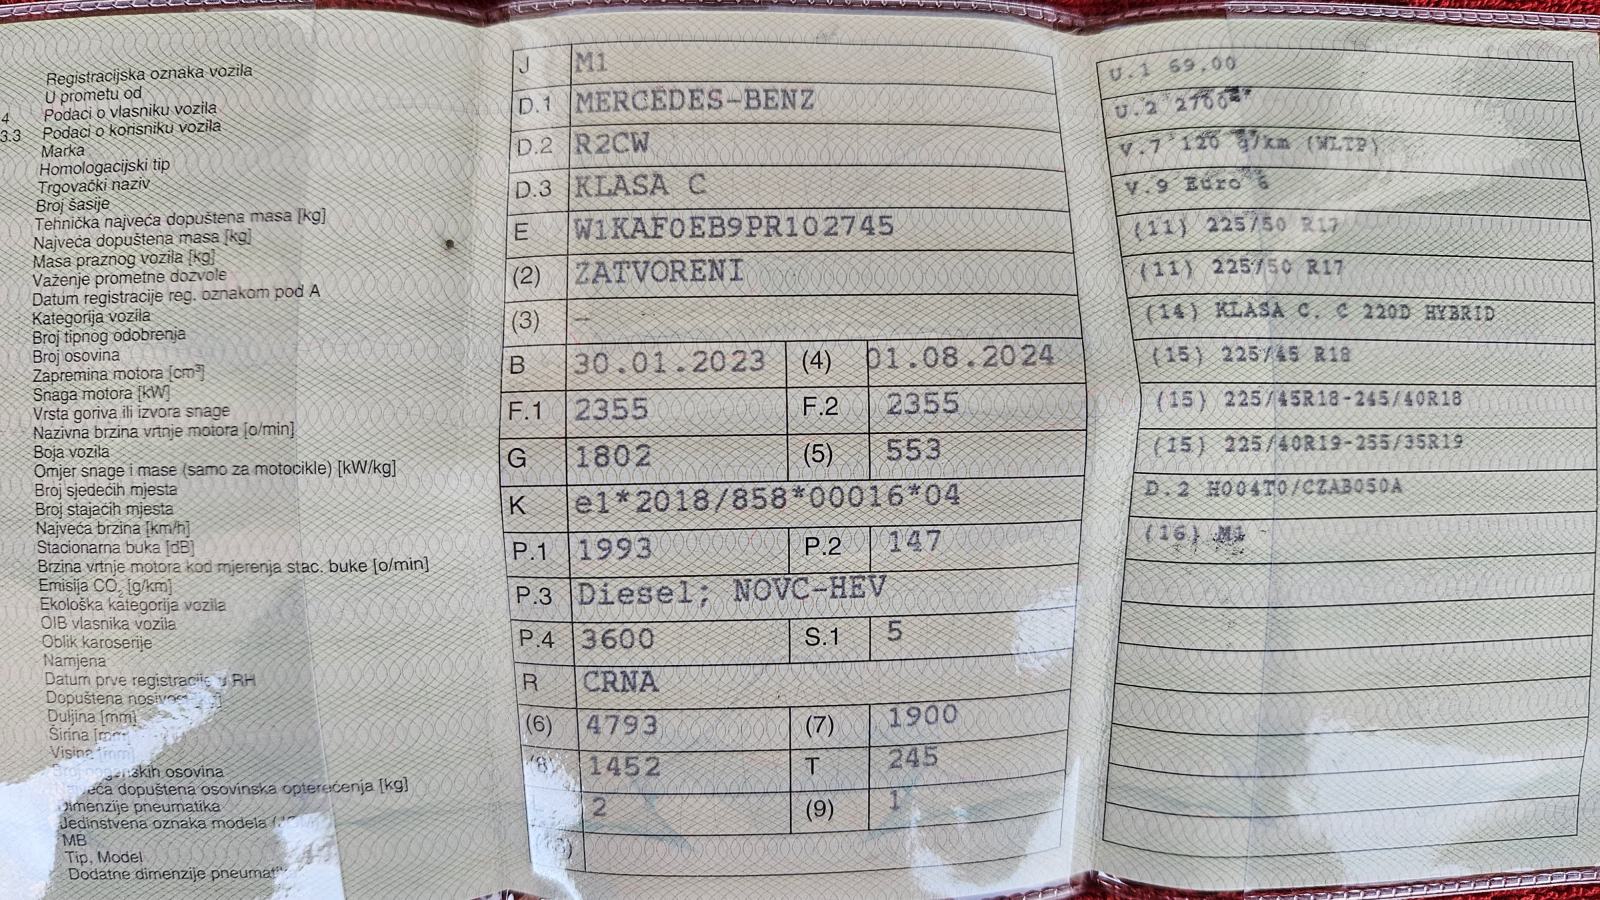 Registracijska oznaka vozila
U prometu od
4 Podaci o vlasniku vozila
3.3 Podaci o korisniku vozila
Marka
Homologacijski tip
Trgovački naziv
Broj šasije
Tehnička najveća dopuštena masa [kg]
Najveća dopuštena masa [kg]
Masa praznog vozila [kg]
Važenje prometne dozvole
Datum registracije reg. oznakom pod A
Kategorija vozila
Broj tipnog odobrenja
Broj osovina
Zapremina motora [cm³]
Snaga motora [kW]
Vrsta goriva ili izvora snage
Nazivna brzina vrtnje motora [o/min]
Boja vozila
Omjer snage i mase (samo za motocikle) [kW/kg]
Broj sjedećih mjesta
Broj stajaćih mjesta
Najveća brzina [km/h]
Stacionarna buka [dB]
Brzina vrtnje motora kod mjerenja stac. buke [o/min]
Emisija CO₂ [g/km]
Ekološka kategorija vozila
OIB vlasnika vozila
Oblik karoserije
Namjena
Datum prve registracije u RH
Dopuštena
Duljina [mm]
Širina
Visina [mm]
osovina
dopuštena osovinska opterećenja [kg]
Dimenzije pneumatika
Jedinstvena oznaka modela
MB
Tip, Model
Dodatne dimenzije
J M1
D.1 MERCEDES-BENZ
D.2 R2CW
D.3 KLASA C
E W1KAF0EB9PR102745
(2) ZATVORENI
(3) –
B 30.01.2023 (4) 01.08.2024
F.1 2355 F.2 2355
G 1802 (5) 553
K e1*2018/858*00016*04
P.1 1993 P.2 147
P.3 Diesel; NOVC-HEV
P.4 3600 S.1 5
R CRNA
(6) 4793 (7) 1900
(8) 1452 T 245
2 (9) 1
U.1 69,00
U.2 2700
V.7 120 g/km (WLTP)
V.9 Euro 6
(11) 225/50 R17
(11) 225/50 R17
(14) KLASA C. C 220D HYBRID
(15) 225/45 R18
(15) 225/45R18-245/40R18
(15) 225/40R19-255/35R19
D.2 H004T0/CZAB050A
(16) M1 -